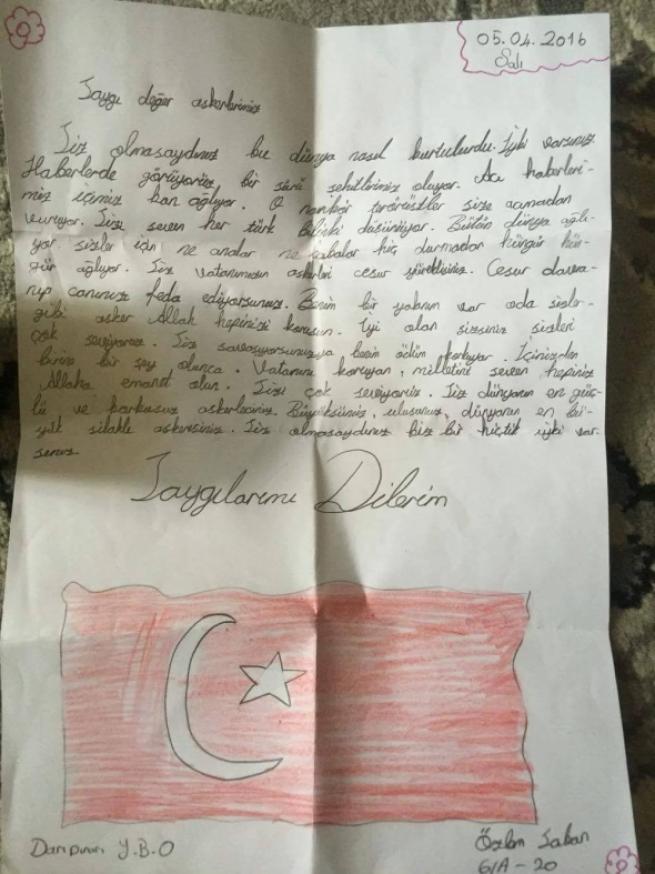 05.04.2016
Salı
Saygı değer askerlerimiz
Siz olmasaydınız bu dünya nasıl kurtulurdu. İyki varsınız.
Haberlerde görüyoruz bir sürü şehitlerimiz oluyor. Acı haberleri-
miz içimiz kan ağlıyor. O terörüstler size acımadan
vuruyor. Sizi seven her türk düşünüyor. Bütün dünya ağlı-
yor sizler için ne analar ne babalar hiç durmadan hüngür hün-
gür ağlıyor. Siz vatanımızın askerleri cesur yüreklisiniz. Cesur davra-
nıp canınızı feda ediyorsunuz. Benim bir yakınım var oda sizler-
gibi asker Allah hepinizi korusun. İyi olan sizsiniz sizleri
çok seviyoruz. Siz savaşıyorsunuzya benim ödüm kopuyor. İçinizden
birine bir şey olunca. Vatanını koruyan, milletini seven hepiniz
Allaha emanet olun. Sizi çok seviyoruz. Siz dünyanın en güç-
lü ve korkusuz askerlerisiniz. Büyüksünüz, ulusunuz, dünyanın en bü-
yük silahlı askerisiniz. Siz olmasaydınız biz bir hiçtik iyki var-
sınız.
Saygılarımı Dilerim
Darıpınarı Y.B.O
Özlem Saban
6/A - 20